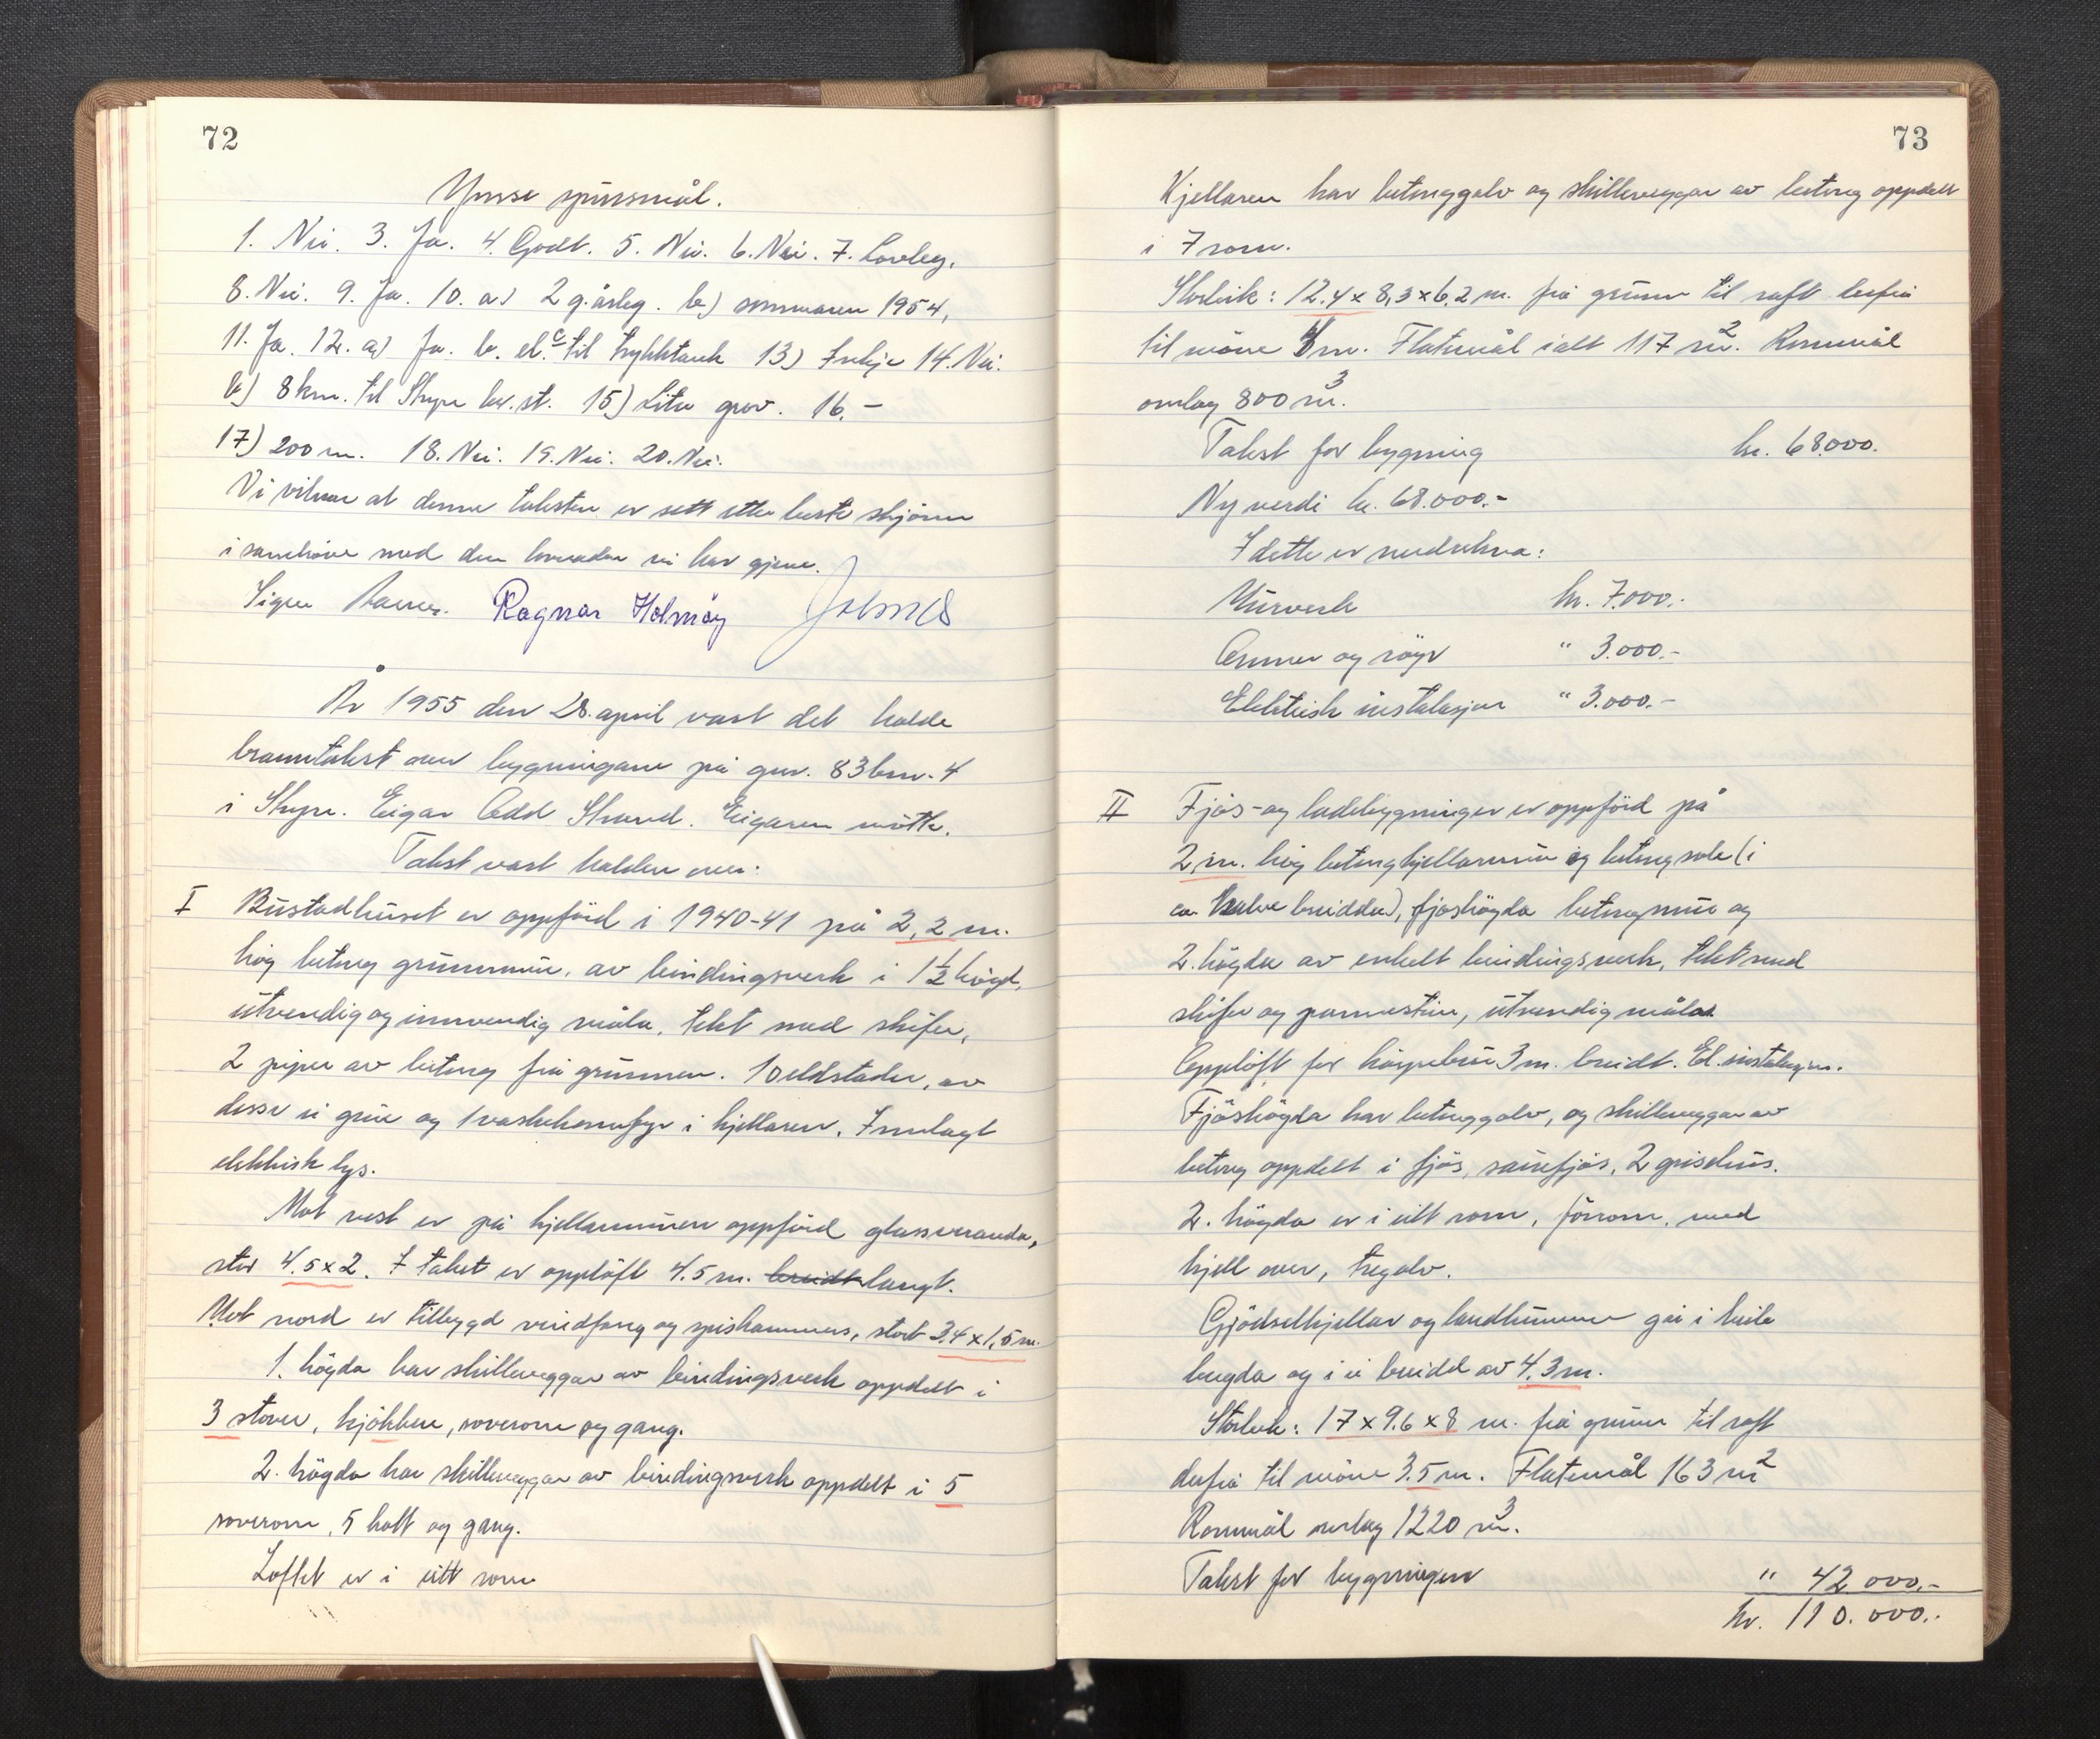 72
Ymse spursmål.
1. Nei. 3. Ja. 4. Godt. 5. Nei. 6. Nei. 7. Lovleg.
8. Nei. 9. Ja. 10. a) 2 g.årleg. b) sommaren 1954,
11. Ja. 12. a) Ja. b. el. til trykktank 13) Inkje 14. Nei.
b) 8 km. til Stryn br.st. 15) Liten grov. 16. –
17) 200 m. 18. Nei. 19. Nei. 20. Nei.
Vi vitnar at denne taksten er sett etter beste skjönn
i samhöve med den lovnaden vi har gjeve.
Ragnar Holmöy
År 1955 den 28. april vart det halde
branntakst over bygningane på gnr. 83 bnr. 4
i Stryn. Eigar Odd Strand. Eigaren mötte.
Takst vart halden over:
I Bustadhuset er oppförd i 1940-41 på 2,2 m.
hög betong grunnmur, av bindingsverk i 1½ högd,
utvendig og innvendig måla, tekt med skifer,
2 piper av betong frå grunnen. 10 eldstader, av
desse ei grue og 1 vaskekomfyr i kjellaren. Innlagt
elektrisk lys.
Mot vest er på kjellarmuren oppförd glassveranda,
stor 4.5 x 2. I taket er opplöft 4.5 m. breidt langt.
Mot nord er tilbygd vindfang og spiskammers, stort 3.4 x 1,5 m.
1. högda har skilleveggar av bindingsverk oppdelt i
3 stover, kjökken, soverom og gang.
2. högda har skilleveggar av bindingsverk oppdelt i 5
soverom, 5 kott og gang.
Loftet er i eitt rom
73
Kjellaren har betonggolv og skilleveggar av betong oppdelt
i 7 rom.
Storleik: 12.4 x 8,3 x 6.2 m. frå grunn til raft herfrå
til möne m. Flatemål ialt 117 m². Rommål
omlag 800 m³.
Takst for bygning kr. 68.000.
Ny verdi kr. 68.000.-
I dette er medrekna:
Murverk kr. 7.000.-
Omner og röyr " 3.000.-
Elektrisk instalasjon " 3.000.-
II Fjös- og ladebygningen er oppförd på
2, m. hög betongkjellarmur og betongsole (i
ca. halve breidda), fjoshögda betongmur og
2. högda av enkelt bindingsverk, tekt med
skifer og pannestein, utvendig måla
Opplöft for höyrebru 3 m. breidt. El. instalasjon.
Fjöshögda har betonggolv, og skilleveggar av
betong oppdelt i fjös, sauefjös, 2 grisehus.
2. högda er i eitt rom, fôrrom, med
hjell over, tregolv.
Gjödselkjellar og landkumme går i heile
lengda og i ei breidd av 4.3 m.
Storleik: 17 x 9.6 x 8 m. frå grunn til raft
derfrå til möne 3.5 m. Flatemål 163 m²
Rommål omlag 1220 m³.
Takst for bygningen " 42 000.-
kr. 110.000.-